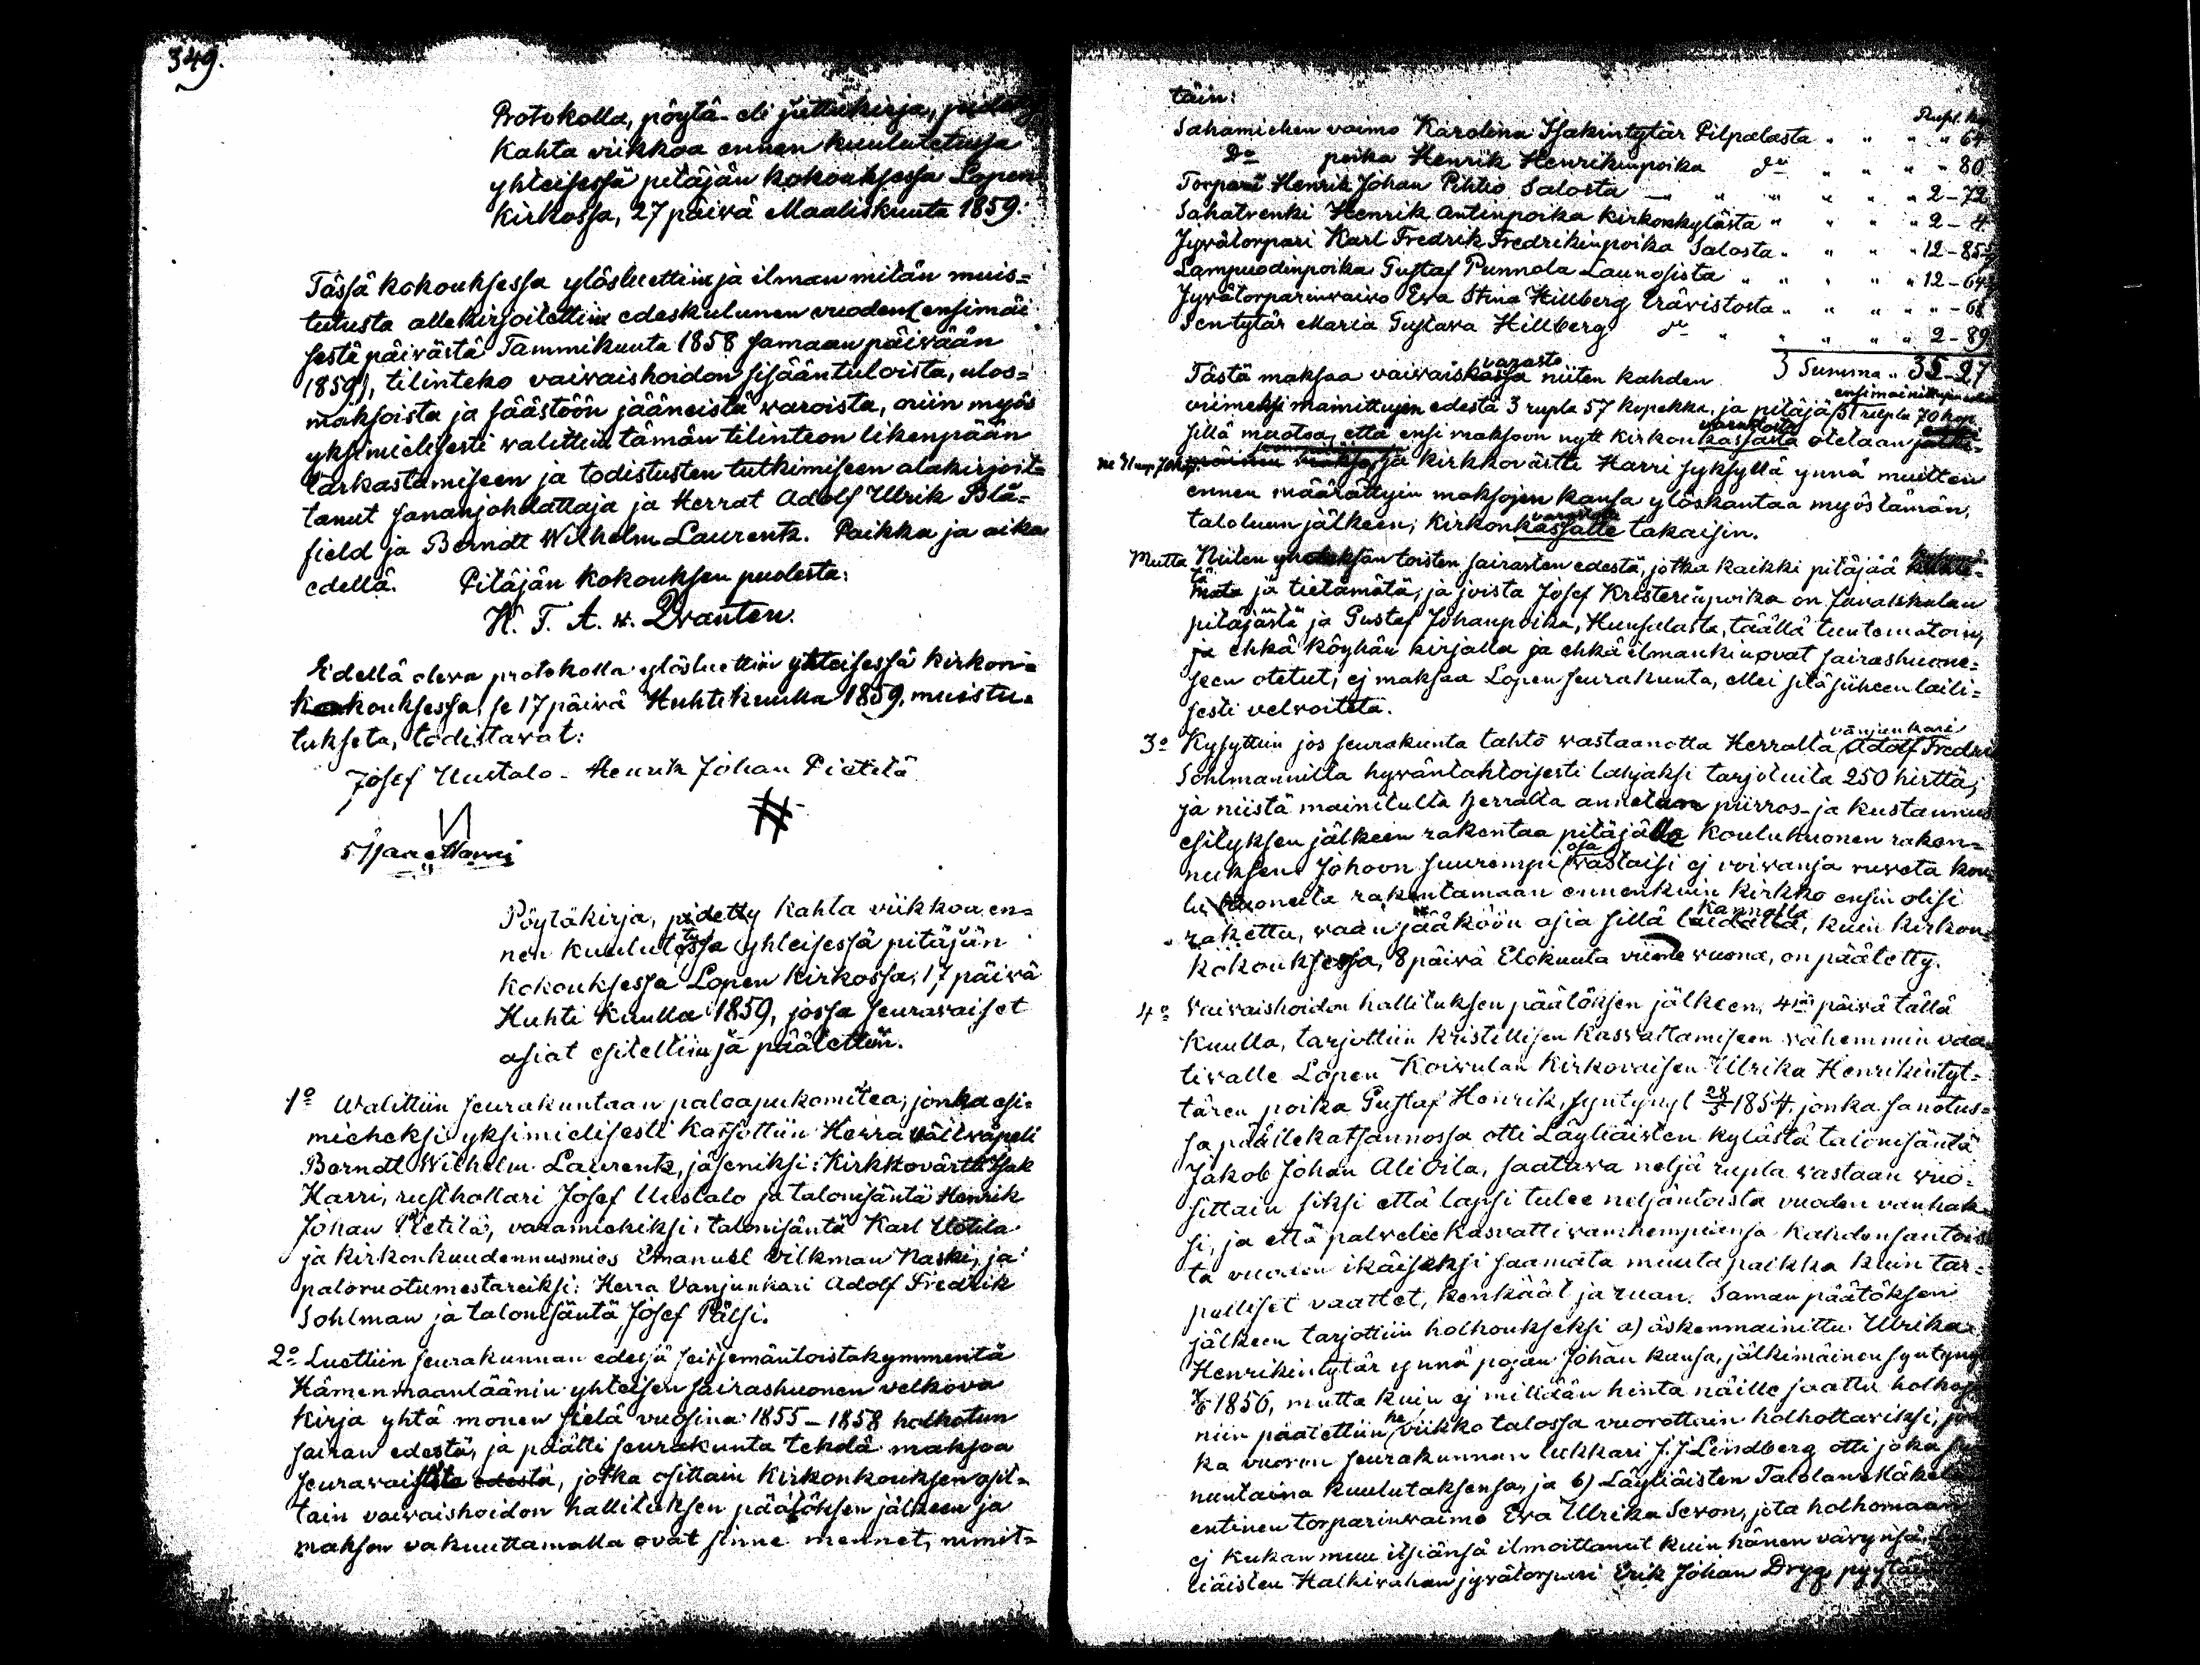 349.
Protokolla, pöytä- eli juttukirja,
kahta viikkoa ennen kuulutetussa
yhteisessä pitäjän kokouksessa Lopen
kirkossa, 27 päivä Maaliskuuta 1859.
Tässä kokouksessa ylösluettiin ja ilman mitän muis-
tutusta allekirjoitettiin edeskulunen vuoden (ensimäi
sestä päivästä Tammikuuta 1858 samaan päivään
1859), tilinteko vaivaishoidon sisääntuloista, ulos-
maksoista ja säästöön jääneistä varoista, niin myös
yksimielisesti valittiin tämän tilinteon likenpään
tarkastamiseen ja todistusten tutkimiseen alakirjoit-
tanut sananjohdattaja ja Herrat Adolf Ulrik Blå-
field ja Berndt Wilhelm Laurentz. Paikka ja aika
edellä. Pitäjän kokouksen puolesta:
H. T. A. v. Qvanten.
Edellä oleva protokolla ylösluettiin yhteisessä kirkon-
kokouksessa, se 17 päivä Huhtikuulla 1859, muistu-
tukseta, todistavat:
Josef Uustalo - Henrik Johan Pietilä
Isaac Harri
Pöytäkirja, pidetty kahta viikkoa en-
nen kuulutetussa yhteisessä pitäjän
kokouksessa Lopen kirkossa, 17 päivä
Huhti kuulla 1859, jossa seuravaiset
asiat esitettiin ja päätettiin.
1o Walittiin seurakuntaan paloapukomitea, jonka esi-
mieheksi yksimielisesti katsottiin Herra välväpeli
Berndt Wilhelm Laurentz, jäseniksi: Kirkkovärtti Isak
Harri, rusthollari Josef Uustalo ja talonisäntä Henrik
Johan Pietilä, varamiehiksi: talonisäntä Karl Uotila
ja kirkonkuudennusmies Emanuel Vilkman Naski, ja
paloruotumestareiksi: Herra Vanjunkari Adolf Fredrik
Sohlman ja talonisäntä Josef Pälsi.
2o Luettiin seurakunnan edesä seitsemäntoistakymmentä
Hämenmaanläänin yhteisen sairashuonen velkova
kirja yhtä monen sielä vuosina 1855-1858 holhotun
sairan edestä, ja päätti seurakunta tehdä maksoa
seuravaisista edestä, jotka osittain kirkonkouksen osit-
tain vaivaishoidon hallituksen päätöksen jälkeen ja
makson vakuuttamalla ovat sinne mennet, nimit-
täin: Rupl. kop.
Sahamiehen vaimo Karolina Isakintytär Pilpalasta " " " " 64
Do poika Henrik Henrikinpoika do " " " " 80
Torpari Henrik Johan Pihtio Salosta — " " " " 2-72
Sahatrenki Henrik Antinpoika kirkonkylästä " " " 2-4
Jyvätorpari Karl Fredrik Fredrikinpoika Salosta " " " 12-85
Lampuodinpoika Gustaf Punnola Launosista " " " " 12-64
Jyvätorparinvaivo Eva Stina Hillberg Erävistosta " " " " - 68
Sen tytär Maria Gustava Hillberg do " " " " 2-89
Summa " 35-27
varasto
Tästä maksaa vaivaiskassa niiten kahden
ensimainittujen
viimeksi mainittujen edestä 3 rupla 57 kopekka, ja pitäjä 31 rupla 70 kop.
varastosta
sillä muotoa, että ensi maksoon nytt kirkon kassasta otetaan
ja kirkkovärtti Harri syksyllä ynnä muitten
ennen määrättyin maksojen kansa ylöskantaa myös tämän,
taloluun jälkeen, kirkonkassalle takaisin.
Mutta Niiten toisten sairasten edestä, jotka kaikki pitäjää
ja tietämätä, ja joista Josef Kristerinpoika on Janakkalan
pitäjästä ja Gustaf Johanpoika, Hunsalasta, täällä tuntematoin,
ja ehkä köyhän kirjalla ja ehkä ilmankin ovat sairashuone-
seen otetut, ej maksaa Lopen seurakunta, ellei sitä siiheen laili-
sesti velvoiteta.
vänjunkari
3o Kysyttiin jos seurakunta tahtö vastaanotta Herralta Adolf Fredri
Sohlmannilta hyväntahtoisesti lahjaksi tarjotuita 250 hirttä,
ja niistä mainitulta herralta annetun piirros- ja kustannus
esityksen jälkeen rakentaa pitäjälle kouluhuonen raken-
nuksen. Johoon suurempi osa vastaisi ej voivansa ruveta kou-
lu huoneita rakentamaan ennenkuin kirkko ensin olisi
kannalla
raketta, vaan jääköön asia sillä laidalla, kuin kirkon-
kokouksessa, 8 päivä Elokuuta viime vuona, on päätetty.
4o Vaivaishoidon hallituksen päätöksen jälkeen, 4 päivä tällä
kuulla, tarjottiin kristillisen kasvattamiseen vähemmin vaa-
tivalle Lopen Koivulan Kirkovaisen Ulrika Henrikintyt-
tären poika Gustaf Henrik, syntynyt 28/5 1854, jonka sanotus-
sa päällekatsannossa otti Läyliäisten kylästä talonisäntä
Jakob Johan Ali Oila, saatava neljä rupla vastaan vuo-
sittain siksi että lapsi tulee neljäntoista vuoden vanhak-
si, ja että palvelee kasvattivanhempiensa kahdensantois
ta vuoden ikäiseksi saamata muuta paikka kuin tar-
pelliset vaattet, kenkäät ja ruan. Saman päätöksen
jälkeen tarjottiin holhoukseksi a) äskenmainittu Ulrika
Henrikintytär ynnä pojan Johan kansa, jälkimäinen syntyny
1856, mutta kuin ej millään hinta näille saattu holhoja
niin päätettiin he viikko talossa vuorottain holhottaviksi,
ka vuoron seurakunnan lukkari J. J. Lindberg otti joka
nuntaina kuulutaksensa, ja b) Läyliäisten Talolan Mäkelä
entinen torparinvaimo Eva Ulrika Sevon, jota holhomaan
ej kukan muu itsiänsä ilmoittanut kuin hänen vävynsä,
liäisten Halkivahan jyvätorpari Erik Johan Dryg, pyytäi